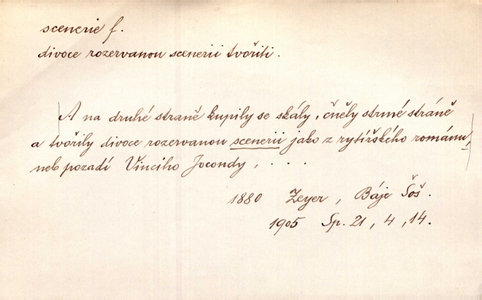 scenerie f.
divoce rozervanou scenerii tvořiti.
A na druhé straně kupily se skály, čněly strmé stráně
a tvořily divoce rozervanou scenerii jako z rytířského románu,
neb pozadí Vinciho Jocondy, . . . .
1880 Zeyer, Báje Šoš.
1905 Sp. 21, 4, 14.